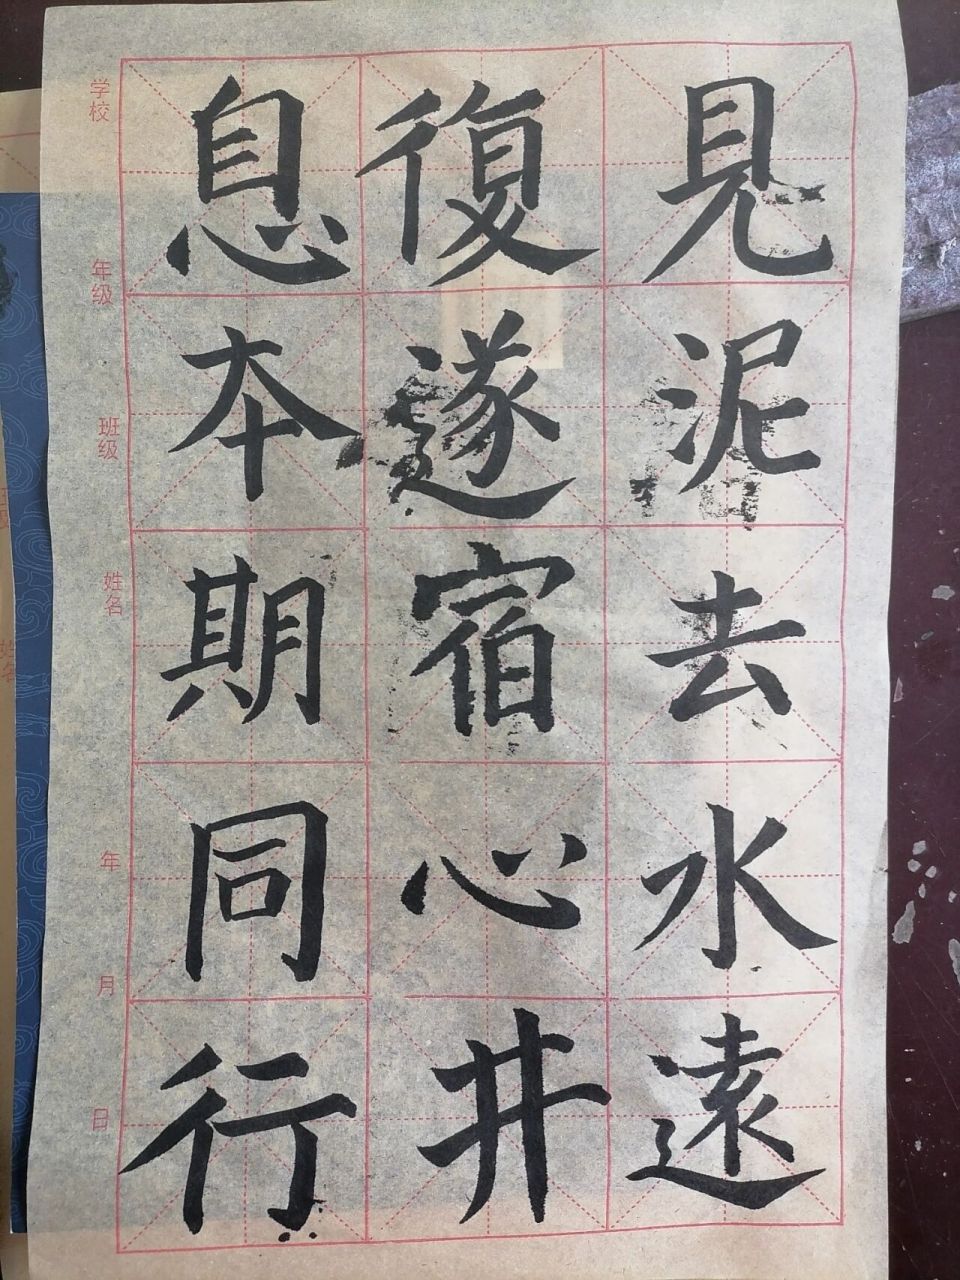 見泥去水遠
復遂宿心井
息本期同行
学校
年级
班级
姓名
年
月
日